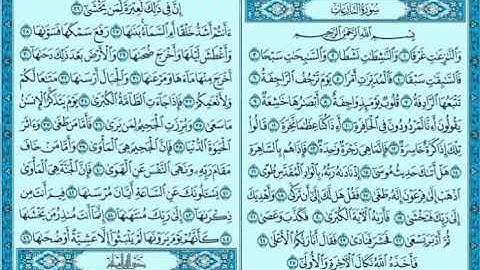 سُورَةُ النَّازِعَاتِ
بِسْمِ اللَّهِ الرَّحْمَٰنِ الرَّحِيمِ
وَالنَّازِعَاتِ غَرْقًا ١ وَالنَّاشِطَاتِ نَشْطًا ٢ وَالسَّابِحَاتِ سَبْحًا ٣
فَالسَّابِقَاتِ سَبْقًا ٤ فَالْمُدَبِّرَاتِ أَمْرًا ٥ يَوْمَ تَرْجُفُ الرَّاجِفَةُ ٦
تَتْبَعُهَا الرَّادِفَةُ ٧ قُلُوبٌ يَوْمَئِذٍ وَاجِفَةٌ ٨ أَبْصَارُهَا خَاشِعَةٌ ٩
يَقُولُونَ أَءِنَّا لَمَرْدُودُونَ فِي الْحَافِرَةِ ١٠ أَءِذَا كُنَّا عِظَامًا نَّخِرَةً ١١ قَالُوا
تِلْكَ إِذًا كَرَّةٌ خَاسِرَةٌ ١٢ فَإِنَّمَا هِيَ زَجْرَةٌ وَاحِدَةٌ ١٣ فَإِذَا هُم بِالسَّاهِرَةِ ١٤
هَلْ أَتَاكَ حَدِيثُ مُوسَىٰ ١٥ إِذْ نَادَاهُ رَبُّهُ بِالْوَادِ الْمُقَدَّسِ طُوًى ١٦
اذْهَبْ إِلَىٰ فِرْعَوْنَ إِنَّهُ طَغَىٰ ١٧ فَقُلْ هَل لَّكَ إِلَىٰ أَن تَزَكَّىٰ ١٨ وَأَهْدِيَكَ
إِلَىٰ رَبِّكَ فَتَخْشَىٰ ١٩ فَأَرَاهُ الْآيَةَ الْكُبْرَىٰ ٢٠ فَكَذَّبَ وَعَصَىٰ ٢١
ثُمَّ أَدْبَرَ يَسْعَىٰ ٢٢ فَحَشَرَ فَنَادَىٰ ٢٣ فَقَالَ أَنَا رَبُّكُمُ الْأَعْلَىٰ ٢٤
فَأَخَذَهُ اللَّهُ نَكَالَ الْآخِرَةِ وَالْأُولَىٰ ٢٥
إِنَّ فِي ذَٰلِكَ لَعِبْرَةً لِّمَن يَخْشَىٰ ٢٦
ءَأَنتُمْ أَشَدُّ خَلْقًا أَمِ السَّمَاءُ بَنَاهَا ٢٧ رَفَعَ سَمْكَهَا فَسَوَّاهَا ٢٨
وَأَغْطَشَ لَيْلَهَا وَأَخْرَجَ ضُحَاهَا ٢٩ وَالْأَرْضَ بَعْدَ ذَٰلِكَ دَحَاهَا ٣٠
أَخْرَجَ مِنْهَا مَاءَهَا وَمَرْعَاهَا ٣١ وَالْجِبَالَ أَرْسَاهَا ٣٢ مَتَاعًا لَّكُمْ
وَلِأَنْعَامِكُمْ ٣٣ فَإِذَا جَاءَتِ الطَّامَّةُ الْكُبْرَىٰ ٣٤ يَوْمَ يَتَذَكَّرُ الْإِنسَانُ
مَا سَعَىٰ ٣٥ وَبُرِّزَتِ الْجَحِيمُ لِمَن يَرَىٰ ٣٦ فَأَمَّا مَن طَغَىٰ ٣٧ وَءَاثَرَ
الْحَيَاةَ الدُّنْيَا ٣٨ فَإِنَّ الْجَحِيمَ هِيَ الْمَأْوَىٰ ٣٩ وَأَمَّا مَنْ خَافَ
مَقَامَ رَبِّهِ وَنَهَى النَّفْسَ عَنِ الْهَوَىٰ ٤٠ فَإِنَّ الْجَنَّةَ هِيَ الْمَأْوَىٰ
٤١ يَسْأَلُونَكَ عَنِ السَّاعَةِ أَيَّانَ مُرْسَاهَا ٤٢ فِيمَ أَنتَ مِن
ذِكْرَاهَا ٤٣ إِلَىٰ رَبِّكَ مُنتَهَاهَا ٤٤ إِنَّمَا أَنتَ مُنذِرُ مَن يَخْشَاهَا
٤٥ كَأَنَّهُمْ يَوْمَ يَرَوْنَهَا لَمْ يَلْبَثُوا إِلَّا عَشِيَّةً أَوْ ضُحَاهَا ٤٦